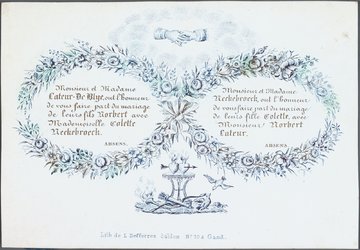 Monsieur et Madame
Cateur-De Blye, ont l'honneur
de vous faire part du mariage
de leurs fils Norbert avec
Mademoiselle Colette
Neckebroeck.
ABSENS.
Monsieur et Madame
Neckebroeck, ont l'honneur
de vous faire part du mariage
de leurs fille Colette, avec
Monsieur Norbert
Cateur.
ABSENS.
Lith de I. Defferrez Sablon Nº 204 Gand.